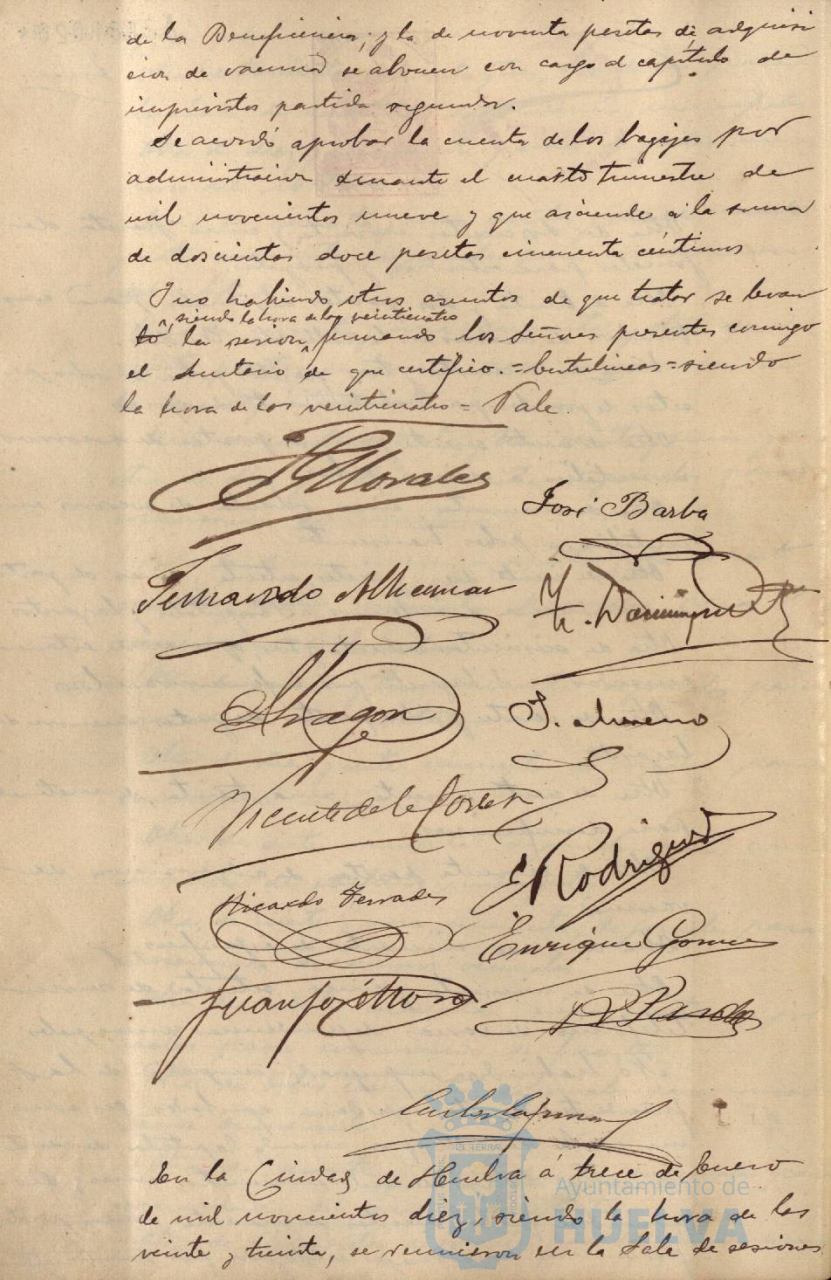 de la Beneficencia; y la de noventa pesetas de adquisi
cion de vacuna se abonen con cargo al capítulo de
imprevistos partida segunda.
Se acordó aprobar la cuenta de los bagajes por
administracion durante el cuarto trimestre de
mil novecientos nueve y que asciende á la suma
de doscientas doce pesetas cincuenta céntimos
Y no habiendo otros asuntos de que tratar se levan
siendo la hora de las veinticuatro
tó la sesión, firmando los Señores presentes conmigo
el Secretario de que certifico. = Entrelineas = siendo
la hora de las veinticuatro = Vale.
Morales
José Barba
Fernando
F. Dominguez
Aragon
J. Moreno
Vicente de la Corte
E Rodriguez
Ricardo Terrades
Enrique Gomez
Juan José Mora
Pardo
En la Ciudad de Huelva á trece de Enero
de mil novecientos diez, siendo la hora de las
veinte y treinta, se reunieron en la Sala de sesiones
Ayuntamiento de
HUELVA